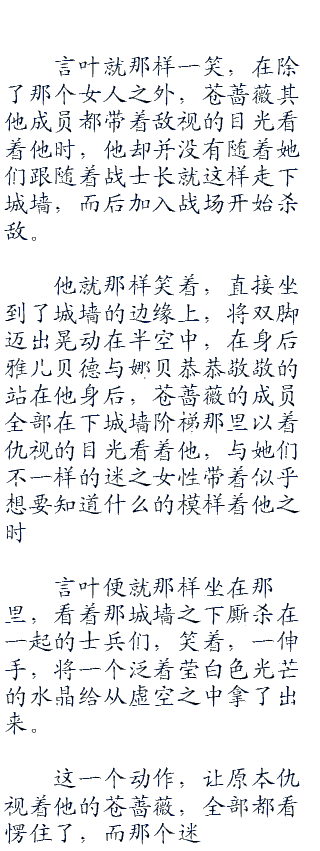 言叶就那样一笑，在除
了那个女人之外，苍蔷薇其
他成员都带着敌视的目光看
着他时，他却并没有随着她
们跟随着战士长就这样走下
城墙，而后加入战场开始杀
敌。
他就那样笑着，直接坐
到了城墙的边缘上，将双脚
迈出晃动在半空中，在身后
雅儿贝德与娜贝恭恭敬敬的
站在他身后，苍蔷薇的成员
全部在下城墙阶梯那里以着
仇视的目光看着他，与她们
不一样的迷之女性带着似乎
想要知道什么的模样着他之
时
言叶便就那样坐在那
里，看着那城墙之下厮杀在
一起的士兵们，笑着，一伸
手，将一个泛着莹白色光芒
的水晶给从虚空之中拿了出
来。
这一个动作，让原本仇
视着他的苍蔷薇，全部都看
愣住了，而那个迷